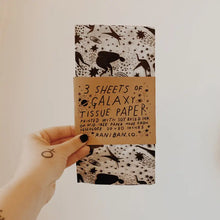 3 SHEETS OF
GALAXY
TISSUE PAPER
PRINTED WITH SOY BASED INK
ON ACID FREE PAPER MADE FROM
20 × 30 INCHES
RANI BAN CO.